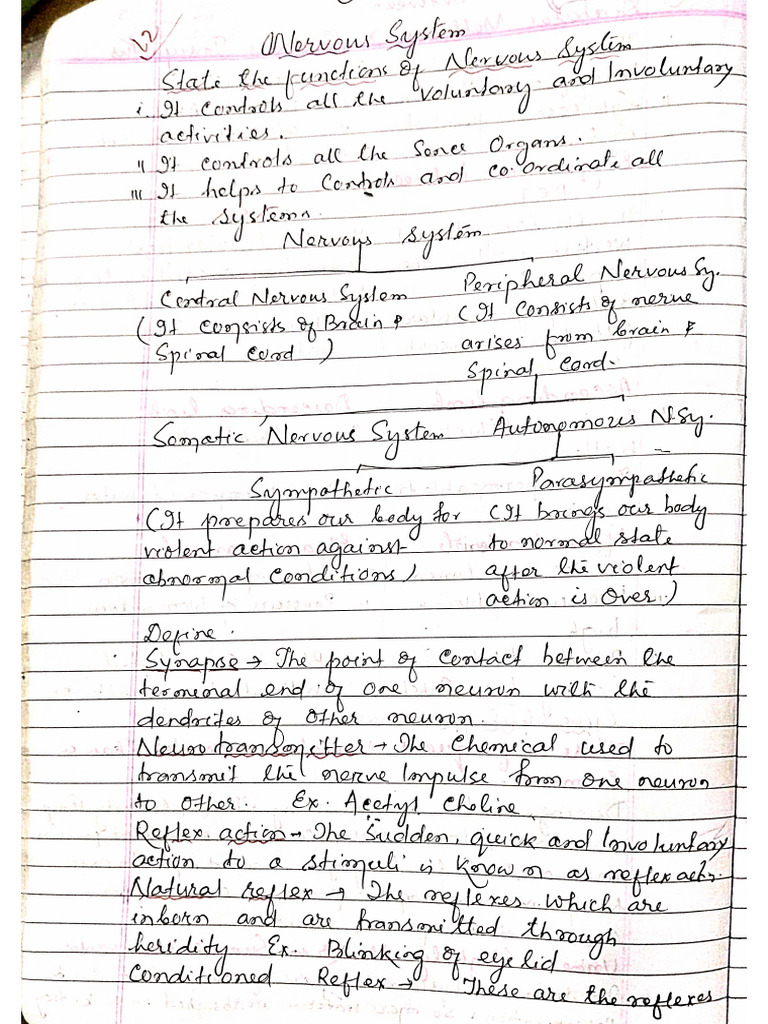 L2
Nervous System
State the functions of Nervous System
i. It controls all the voluntary and Involuntary
activities.
ii It controls all the Sence Organs.
iii It helps to Controls and co-ordinate all
the systems.
Nervous System
Central Nervous System Peripheral Nervous Sy.
(It consists of Brain & (It Consists of nerve
Spinal Cord) arises from brain &
Spinal Cord.
Somatic Nervous System Autonomous N.Sy.
Sympathetic Parasympathetic
(It prepares our body for (It brings our body
violent action against to normal state
abnormal conditions) after the violent
action is over.)
Define.
Synapse → The point of contact between the
terminal end of one neuron with the
dendrites of other neuron.
Neurotransmitter → The Chemical used to
transmit the nerve Impulse form one neuron
to other. Ex. Acetyl choline
Reflex action → The Sudden, quick and Involuntary
action to a stimuli is known as reflex actn.
Natural reflex → The reflexes which are
inborn and are transmitted through
heridity Ex. Blinking of eyelid
Conditioned Reflex → These are the reflexes